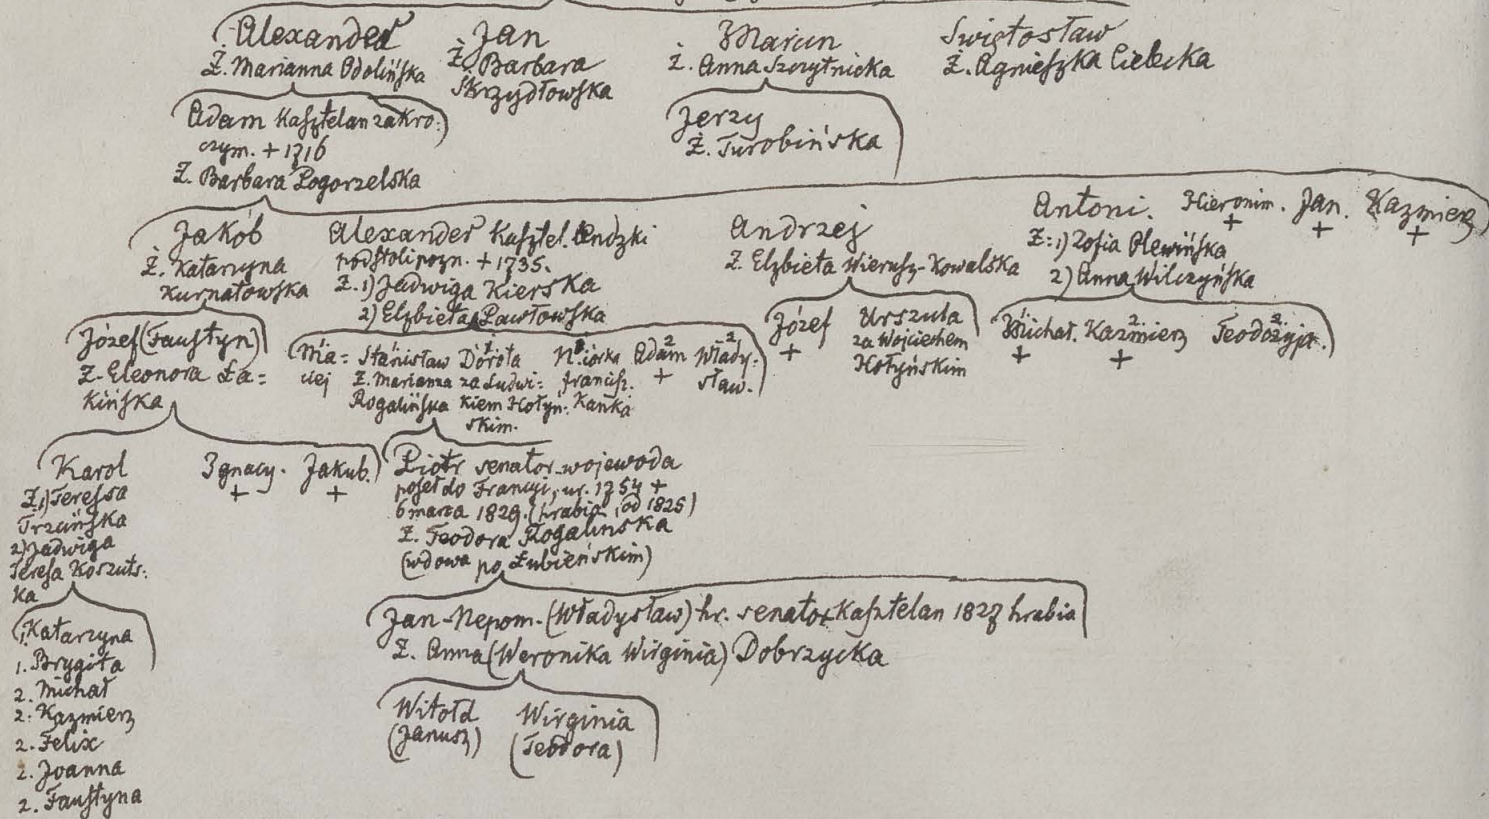 Alexander
Ż. Marianna Odolińska
Jan
Ż. Barbara
Skrzydłowska
Marcin
Ż. Anna Szczytnicka
Swiętosław
Ż. Agnieszka Cielecka
Adam Kasztelan zakro-
czym. + 1716
Ż. Barbara Pogorzelska
Jerzy
Ż. Turobińska
Jakób
Ż. Katarzyna
Kurnatowska
Alexander Kasztel. Lendzki
podstoli pozn. + 1735.
Ż. 1) Jadwiga Kierska
2) Elżbieta Pawłowska
Andrzej
Ż. Elżbieta Wierusz-Kowalska
Antoni.
Ż: 1) Zofia Plewińska
2) Anna Wilczyńska
Hieronim.
+
Jan.
+
Kazmierz
+
Józef (Faustyn)
Ż. Eleonora Ła=
kińska
Ma=
ciej
Stanisław
Ż. Marianna
Rogalińska
1
Dorota
za Ludwi=
kiem Hołyń=
skim.
N. córka
francisz.
kanka
2
Adam
+
2
Włady-
sław.
Józef
+
Urszula
za Wojciechem
Hołyńskim
Michał.
+
2
Kazmierz
+
2
Teodozyja.
Karol
Ż. 1) Teressa
Trzcińska
2) Jadwiga
Teresa Koszuts-
ka
Ignacy.
+
Jakub.
+
Piotr senator-wojewoda
poseł do Francyi, ur. 1754 +
6 marca 1829. (hrabia od 1825)
Ż. Teodora Rogalinska
(wdowa po Łubieńskim)
1. Katarzyna
1. Brygita
2. Michał
2. Kazmierz
2. Felix
2. Joanna
2. Faustyna
Jan-Nepom. (Władysław) hr. senator Kasztelan 1827 hrabia
Ż. Anna (Weronika Wirginia) Dobrzycka
Witołd
(Janusz)
Wirginia
(Teodora)